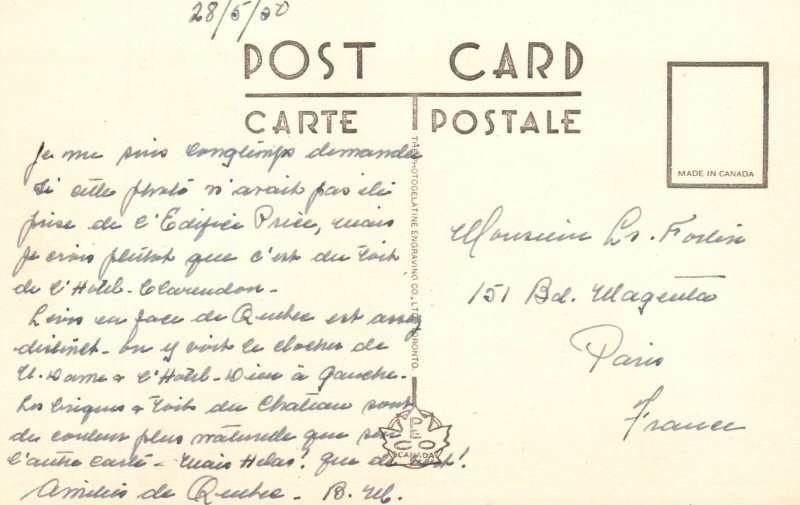 28/5/50
POST CARD
CARTE POSTALE
MADE IN CANADA
Je me suis longtemps demandé
si cette photo n'avait pas été
prise de l'Edifice Price, mais
je crois plutôt que c'est du toit
de l'Hotel-Clarendon-
Levis en face de Quebec est assez
distinct- on y voit le clocher de
N. Dame & l'Hotel-Dieu à gauche.
Les briques & toits du Chateau sont
de couleur plus naturelle que sur
l'autre carte- Mais Helas! que de !
Amitiés de Quebec- B. M.
THE PHOTOGELATINE ENGRAVING CO., LTD. TORONTO.
PECO
CANADA
Monsieur Ls. Fortin
151 Bd. Magenta
Paris
France